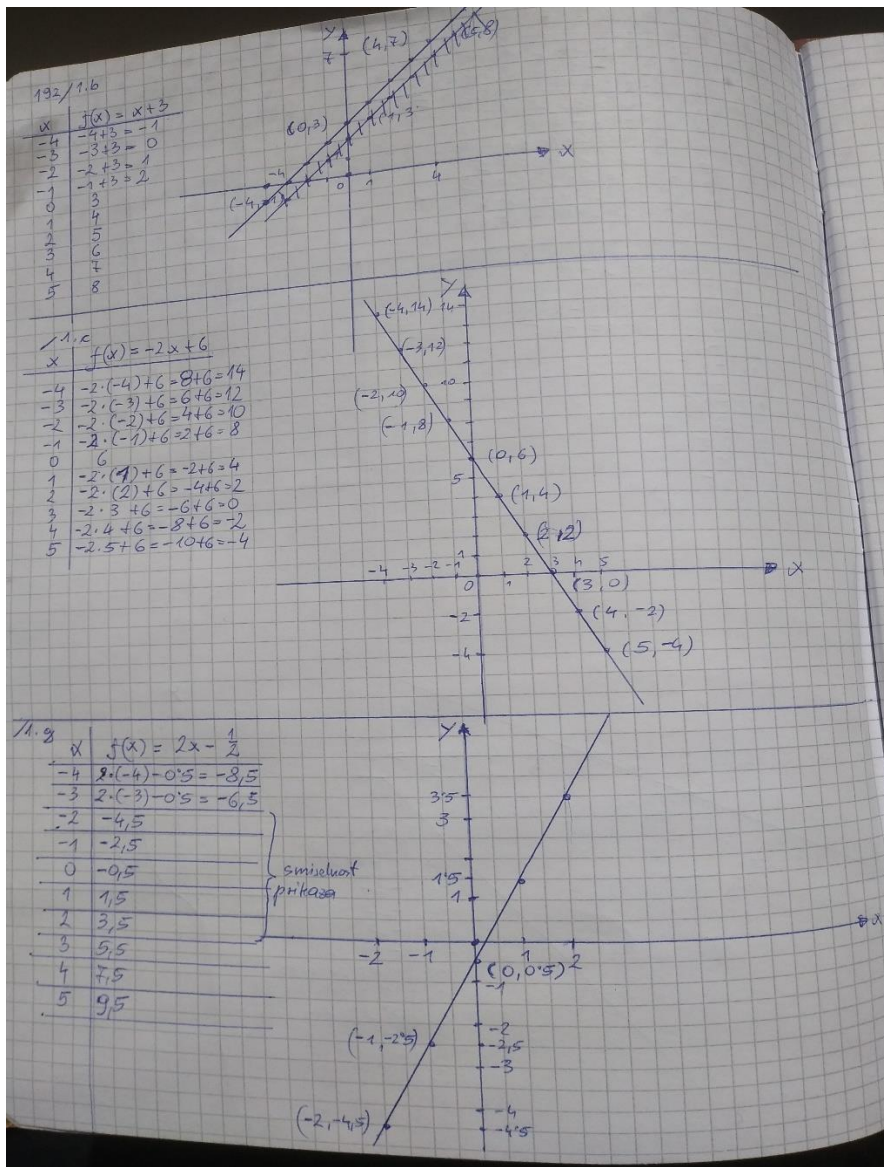 192/1.b
x f(x) = x+3
-4 -4+3 = -1
-3 -3+3 = 0
-2 -2+3 = 1
-1 -1+3 = 2
0 3
1 4
2 5
3 6
4 7
5 8
y
7
(4,7)
(5,8)
(0,3)
-4
0
1
4
x
/1.c
x f(x) = -2x+6
-4 -2·(-4)+6=8+6=14
-3 -2·(-3)+6=6+6=12
-2 -2·(-2)+6=4+6=10
-1 -2·(-1)+6=2+6=8
0 6
1 -2·(1)+6=-2+6=4
2 -2·(2)+6=-4+6=2
3 -2·3+6=-6+6=0
4 -2·4+6=-8+6=-2
5 -2·5+6=-10+6=-4
y
(-4,14) 14
(-3,12)
(-2,10) 10
(-1,8)
(0,6)
5
(1,4)
(2,2)
1
-4 -3 -2 -1 0 1 2 3 4 5 x
(3,0)
-2 (4,-2)
-4 (5,-4)
/1.g
x f(x) = 2x - 1/2
-4 2·(-4)-0'5 = -8,5
-3 2·(-3)-0'5 = -6,5
-2 -4,5
-1 -2,5
0 -0,5
1 1,5
2 3,5
3 5,5
4 7,5
5 9,5
smiselnost
prikaza
y
3'5
3
1'5
1
-2 -1 1 2 x
(0,0'5)
-1
-2
(-1,-2'5) -2,5
-3
-4
(-2,-4,5) -4'5